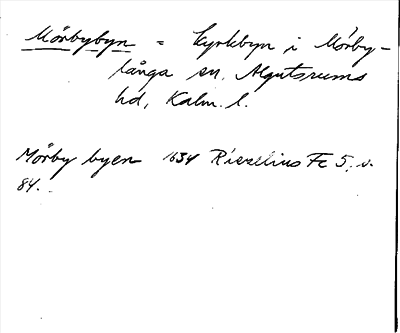 Mörbybyn = kyrkbyn i Mörby-
långa sn, Algutsrums
hd, Kalm. l.
Mörby byen 1634 Riezelius Fc 5, s.
84.